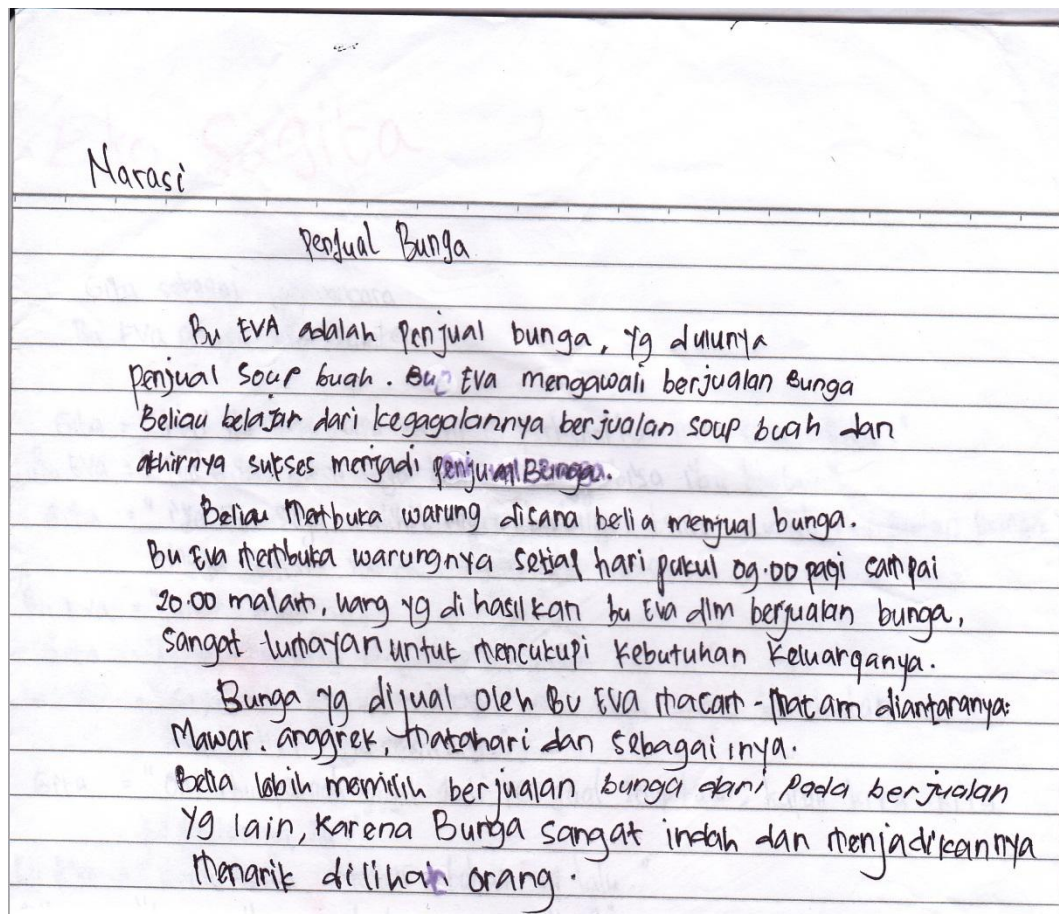 Narasi
Penjual Bunga
Bu EVA adalah Penjual bunga, yg dulunya
Penjual Soup buah. Bu EVA mengawali berjualan Bunga
Beliau belajar dari kegagalannya berjualan soup buah dan
akhirnya sukses menjadi penjual Bunga.
Beliau Membuka warung disana belia menjual bunga.
Bu Eva Membuka warungnya setiap hari pukul 09.00 pagi sampai
20.00 malam, uang yg di hasilkan bu Eva dlm berjualan bunga,
Sangat lumayan untuk mencukupi kebutuhan Keluarganya.
Bunga yg dijual oleh Bu EVA Macam-Macam diantaranya:
Mawar. anggrek, Matahari dan sebagai inya.
Belia labih memilih berjualan bunga dari pada berjualan
Yg lain, Karena Bunga sangat indah dan Menjadikannya
Menarik dilihat orang.